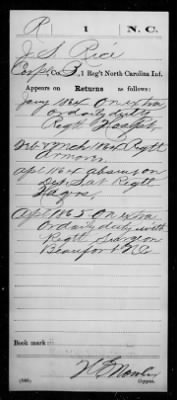 R 1 N.C.
J. S. Rice
Corpl, Co. B, 1 Reg't North Carolina Inf.
Appears on Returns as follows:
Jany 1864 On extra
or daily duty
Regtl Hospital,
Feby & Mch 1864 Regtl
Armorer
Apl 1864 absent on
Det. Sat Regtl
Hdqrs,
Apl 1865 On extra
or daily duty with
Regtl Surgeon
Beaufort N.C.
Book mark:
(546) Copyist.